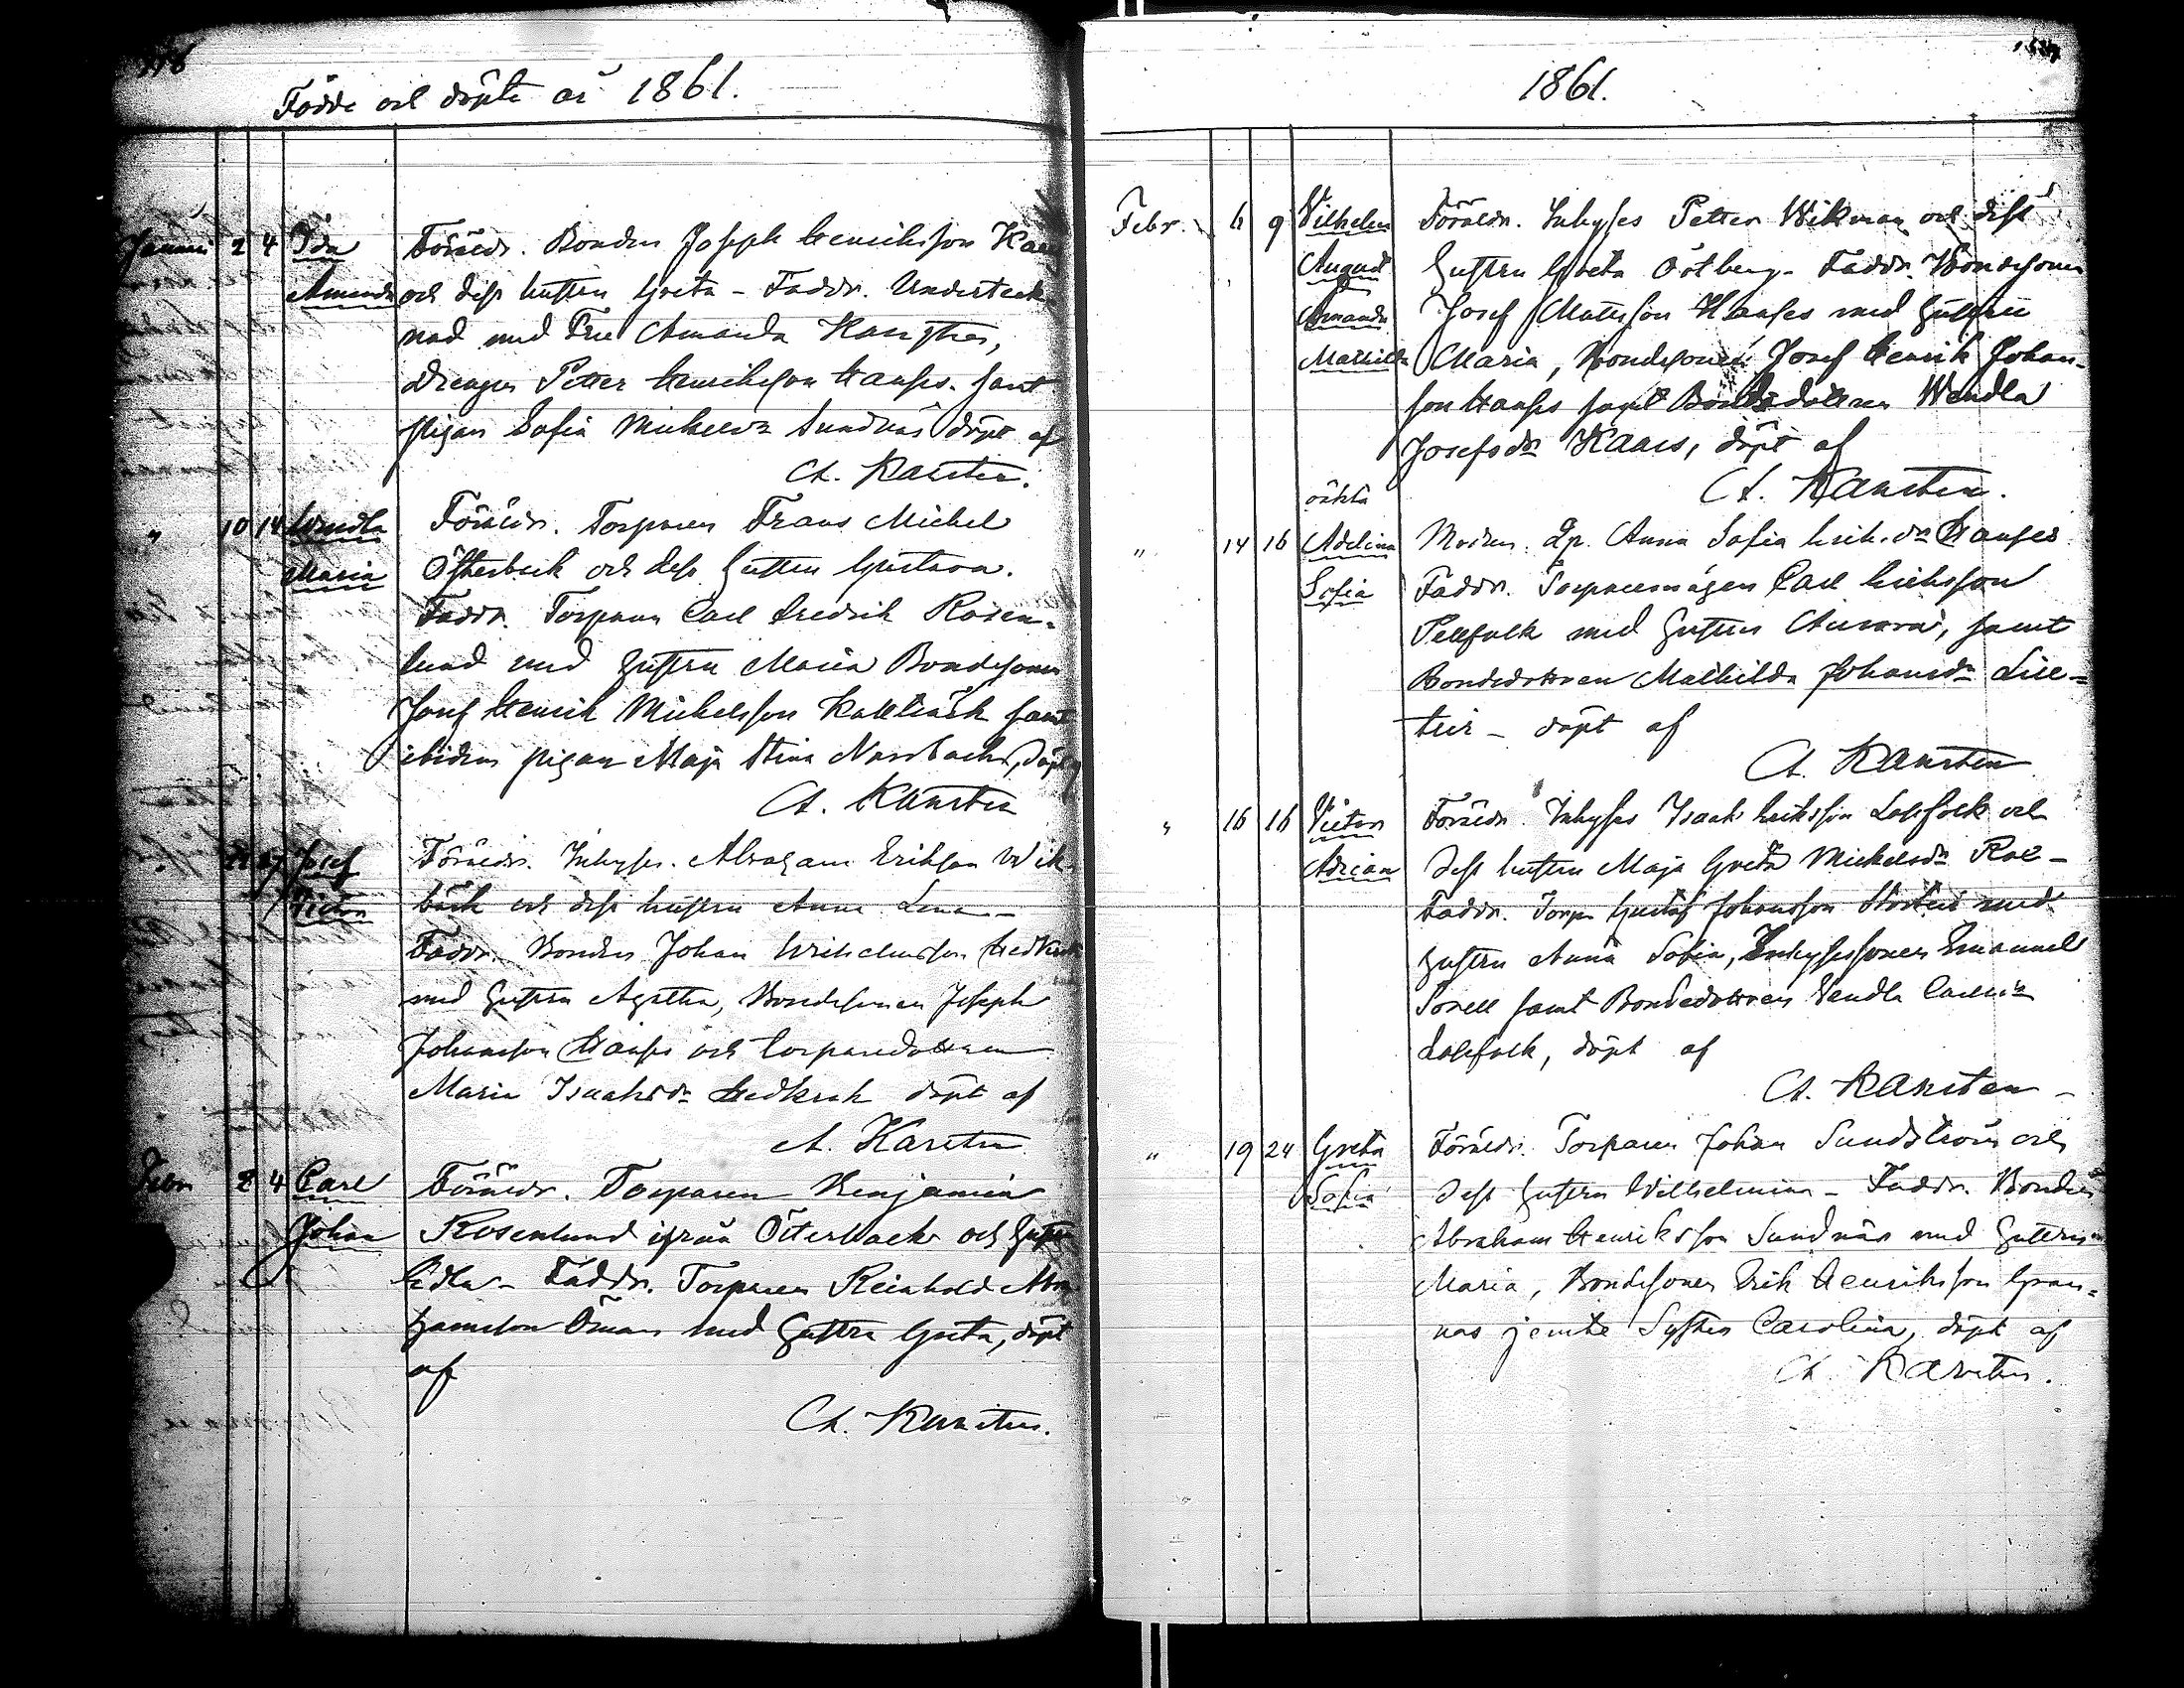 Födde och döpte år 1861.
Januari 2 4 Ida Föräldr. Bonden Joseph Henriksson
Amanda och dess hustru Greta - Faddr. Underteck-
nad med Fru Amanda
Drengen Petter Henriksson Hanses samt
pigan Sofia Michelsdr Sundnäs döpt af
A. Karsten.
" 10 14 Wendla Föräldr. Torparen Frans Michel
Maria Österback och dess Hustru Gustava.
Faddr. Torparen Carl Fredrik Rosen-
lund med Hustru Maria Bondesonen
Josef Henrik Michelsson Kallträsk samt
ibidem pigan Maja Stina döpt af
A. Karsten
27 Josef Föräldr. Inhyses Abraham Erikson Wik-
Victor back och dess hustru Anna Lena -
Faddr. Bonden Johan
med Hustru Agatha, Bondesonen Joseph
Johansson Hanses och torparedottren
Maria Isaksdr döpt af
A. Karsten
Febr 2 4 Carl Föräldr. Torparen Benjamin
Johan Rosenlund ifrån Ötterback och Hustru
- Faddr. Torparen Reinhold Abra-
hamsson Öman med Hustru Greta, döpt
af
A. Karsten.
1861.
Febr. 6 9 Vilhelm Föräldr. Inhyses Petter Wikman och dess
August Hustru Greta Östberg - Faddr. Bondesonen
Amandus Josef Mattsson Hanses med Hustru
Maria, Bondesonen Josef Henrik Johan-
son Hanses samt Bondedottren Wendla
Josefsdr döpt af
A. Karsten.
oäkta
" 14 16 Adelina Modren. Qp. Anna Sofia Erik.dr Hanses
Sofia Faddr. Torparemågen Carl Eriksson
Pellfolk med Hustru Aurora, samt
Bondedottren Mathilda Johansdr Lill-
teir - döpt af
A. Karsten
" 16 16 Victor Föräldr. Inhyses Isaak Eriksson Lassfolk och
Adrian dess hustru Maja Greta Michelsdr
Faddr. Torp. Gustaf Johansson med
Hustru Anna Sofia, Inhysessonen Emanuel
samt Bondedottren Vendla Carlsdr
Lassfolk, döpt af
A. Karsten -
" 19 24 Greta Föräldr. Torparen Johan Sundström och
Sofia dess Hustru Wilhelmina - Faddr. Bonden
Abraham Henriksson Sundnäs med Hustrun
Maria, Bondesonen Erik Henriksson Gran-
nas jemte Syster Carolina, döpt af
A. Karsten.